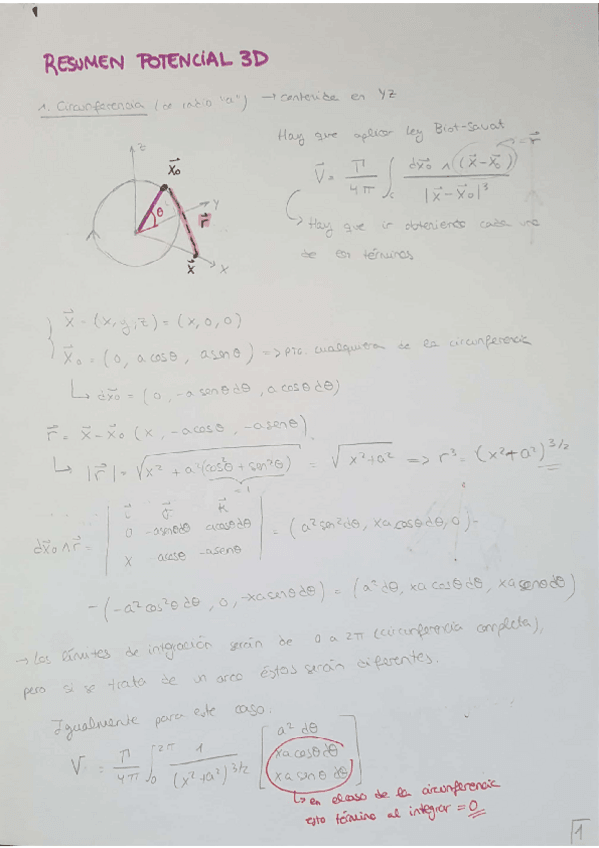 RESUMEN POTENCIAL 3D
1. Circunferencia (de radio "a") → contenida en YZ
Hay que aplicar ley Biot-Savat
z
x⃗₀
y
θ
r⃗
x⃗
x
V⃗ = Γ/4π ∫c dx⃗₀ ∧ (x⃗-x⃗₀) / |x⃗-x⃗₀|³ = r⃗
↳ Hay que ir obteniendo cada uno
de los términos
x⃗ = (x, y, z) = (x, 0, 0)
x⃗₀ = (0, a cosθ, a senθ) => pto. cualquiera de la circunferencia
↳ dx⃗₀ = (0, -a senθ dθ, a cosθ dθ)
r⃗ = x⃗ - x⃗₀ (x, -a cosθ, -a senθ)
↳ |r⃗| = √(x² + a²(cos²θ + sen²θ)) = √(x² + a²) => r³ = (x² + a²)^3/2
= 1
i⃗ j⃗ k⃗
0 -a senθ dθ a cosθ dθ
x -a cosθ -a senθ
dx⃗₀ ∧ r⃗ = = (a² sen² dθ, x a cosθ dθ, 0) -
- (-a² cos²θ dθ, 0, -x a senθ dθ) = (a² dθ, x a cosθ dθ, x a senθ dθ)
→ Los límites de integración serán de 0 a 2π (circunferencia completa),
pero si se trata de un arco éstos serán diferentes.
Igualmente para este caso:
V⃗ = Γ/4π ∫₀^2π 1/(x² + a²)^3/2 [a² dθ
x a cosθ dθ
x a sinθ dθ]
↳ en el caso de la circunferencia
esto término al integrar = 0
1